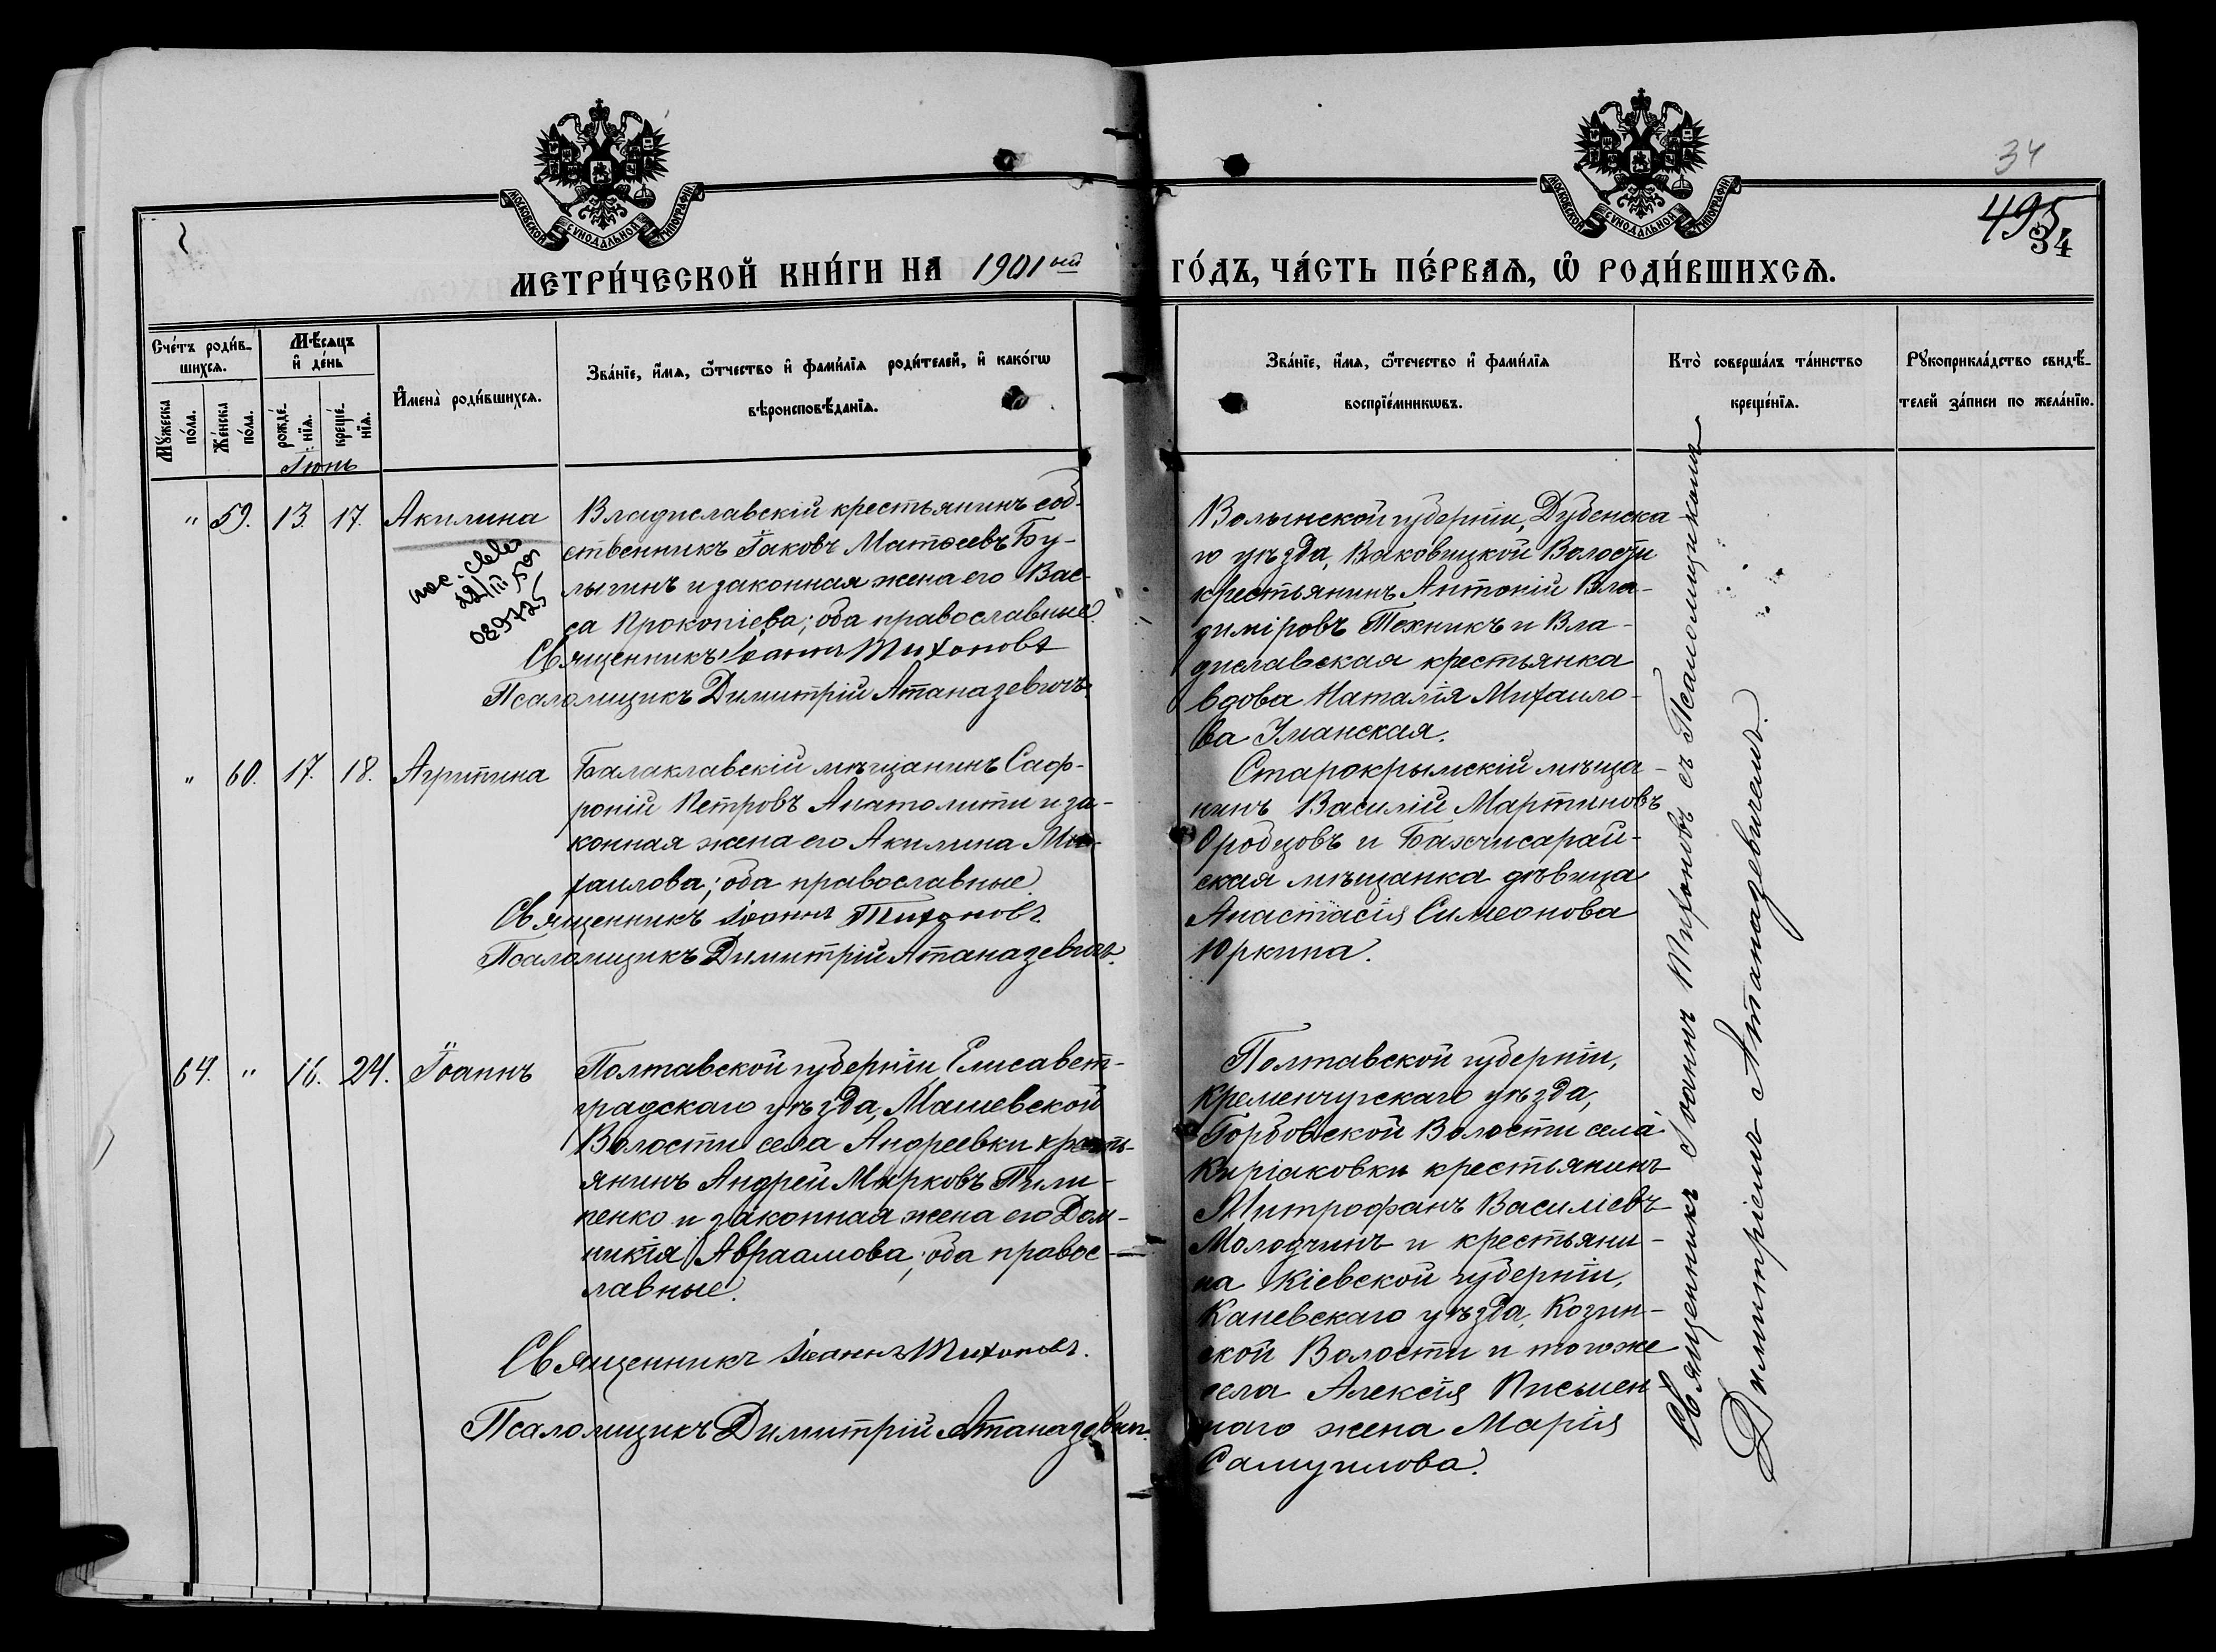 34
495
34
МОСКОВСКОЙ СУНОДАЛЬНОЙ ТИПОГРАФІИ
МОСКОВСКОЙ СУНОДАЛЬНОЙ ТИПОГРАФІИ
МЕТРИ́ЧЕСКОЙ КНИ́ГИ НА 1901ый ГО́ДЪ, ЧА́СТЬ ПЕ́РВАѦ, Ѡ҆ РОДИ́ВШИХСѦ.
Сче́тъ роди́в-
шихсѧ.
Мꙋ́жеска по́ла.
Же́нска по́ла.
Мѣ́сѧцъ
и҆ де́нь
рожде́-
нїѧ.
креще́-
нїѧ.
И҆мена̀ роди́вшихсѧ.
Зва́нїе, и҆́мѧ, ѻ҆́тчество и҆ фами́лїѧ роди́телей, и҆ како́гѡ
вѣроисповѣ́данїѧ.
Зва́нїе, и҆́мѧ, ѻ҆́течество и҆ фами́лїѧ
воспрїе́мникѡвъ.
Кто̀ соверша́лъ та́инство
креще́нїѧ.
Рꙋкоприкла́дство свидѣ́-
телей за́писи по жела́нїю.
Іюнь
" 59. 13. 17. Акилина
22/III 50
039725
Владиславскій крестьянинъ соб-
ственникъ Іаковъ Матѳеевъ Бу-
лыгинъ и законная жена его Вас-
са Прокопіева; оба православные.
Священникъ Іоаннъ Тихоновъ
Псаломщикъ Димитрій Атаназевичъ.
Волынской губерніи, Дубенска-
го уѣзда, Ваковецкой Волости
крестьянинъ Антоній Вла-
диміровъ Техникъ и Вла-
диславская крестьянка
вдова Наталія Михаило-
ва Уманская.
" 60. 17. 18. Агрипина
Балаклавскій мѣщанинъ Саф-
роній Петровъ Анатолити и за-
конная жена его Акилина Ми-
хаилова; оба православные.
Священникъ Іоаннъ Тихоновъ
Псаломщикъ Димитрій Атаназевичъ.
Старокрымскій мѣща-
нинъ Василій Мартиновъ
Оробцовъ и Бахчисарай-
ская мѣщанка дѣвица
Анастасія Симеонова
Юркина.
64. " 16. 24. Іоаннъ
Полтавской губерніи, Елисавет-
градскаго уѣзда, Машевской
Волости села Андреевки кресть-
янинъ Андрей Марковъ Пили-
пенко и законная жена его Дом-
никія Авраамова; оба правос-
лавные.
Священникъ Іоаннъ Тихоновъ.
Псаломщикъ Димитрій Атаназевич.
Полтавской губерніи,
Кременчугскаго уѣзда,
Горбовской Волости села
Киріаковки крестьянинъ
Митрофанъ Василіевъ
Молодчинъ и крестьяни-
на Кіевской губерніи,
Каневскаго уѣзда, Козин-
ской Волости и тогоже
села Алексія Письмен-
наго жена Марія
Самуилова.
Священникъ Іоаннъ Тихоновъ съ Псаломщикомъ
Димитріемъ Атаназевичемъ.